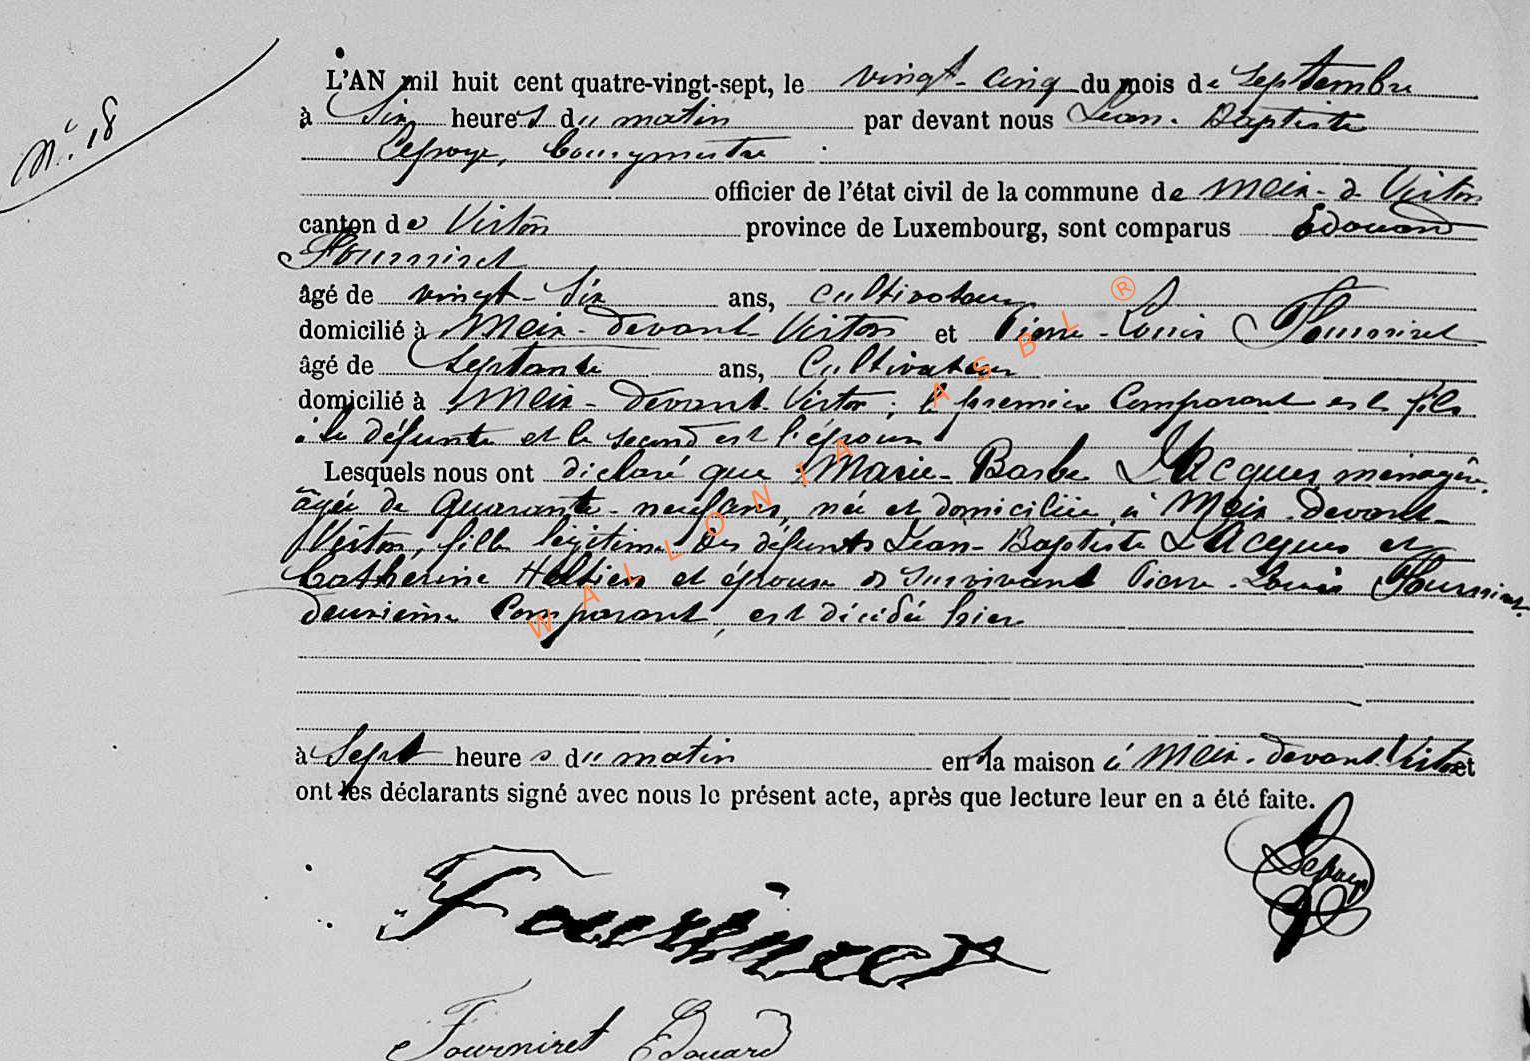 N° 18
L'AN mil huit cent quatre-vingt-sept, le vingt-cinq du mois de Septembre
à Six heures du matin par devant nous Jean-Baptiste
Lepage, bourgmestre
officier de l'état civil de la commune de Meix-d-Virton
canton de Virton province de Luxembourg, sont comparus Edouard
Fourniret
âgé de vingt-six ans, cultivateur
domicilié à Meix-devant Virton et Pierre-Louis Fourniret
âgé de Septante ans, Cultivateur
domicilié à Meix-devant-Virton; le premier Comparant est le fils
de la défunte et le second est l'époux
Lesquels nous ont déclaré que Marie-Barbe Jacques ménagère
âgée de quarante-neuf ans, née et domiciliée à Meix-devant-
Virton, fille légitime des défunts Jean-Baptiste Jacques et
Catherine et épouse du survivant Pierre-Louis Fourniret
deuxième Comparant, est décédée hier
à Sept heures du matin en la maison à Meix-devant-Virton et
ont les déclarants signé avec nous le présent acte, après que lecture leur en a été faite.
Lepage
Fourniret
Fourniret Edouard
WALLONIA ASBL ®